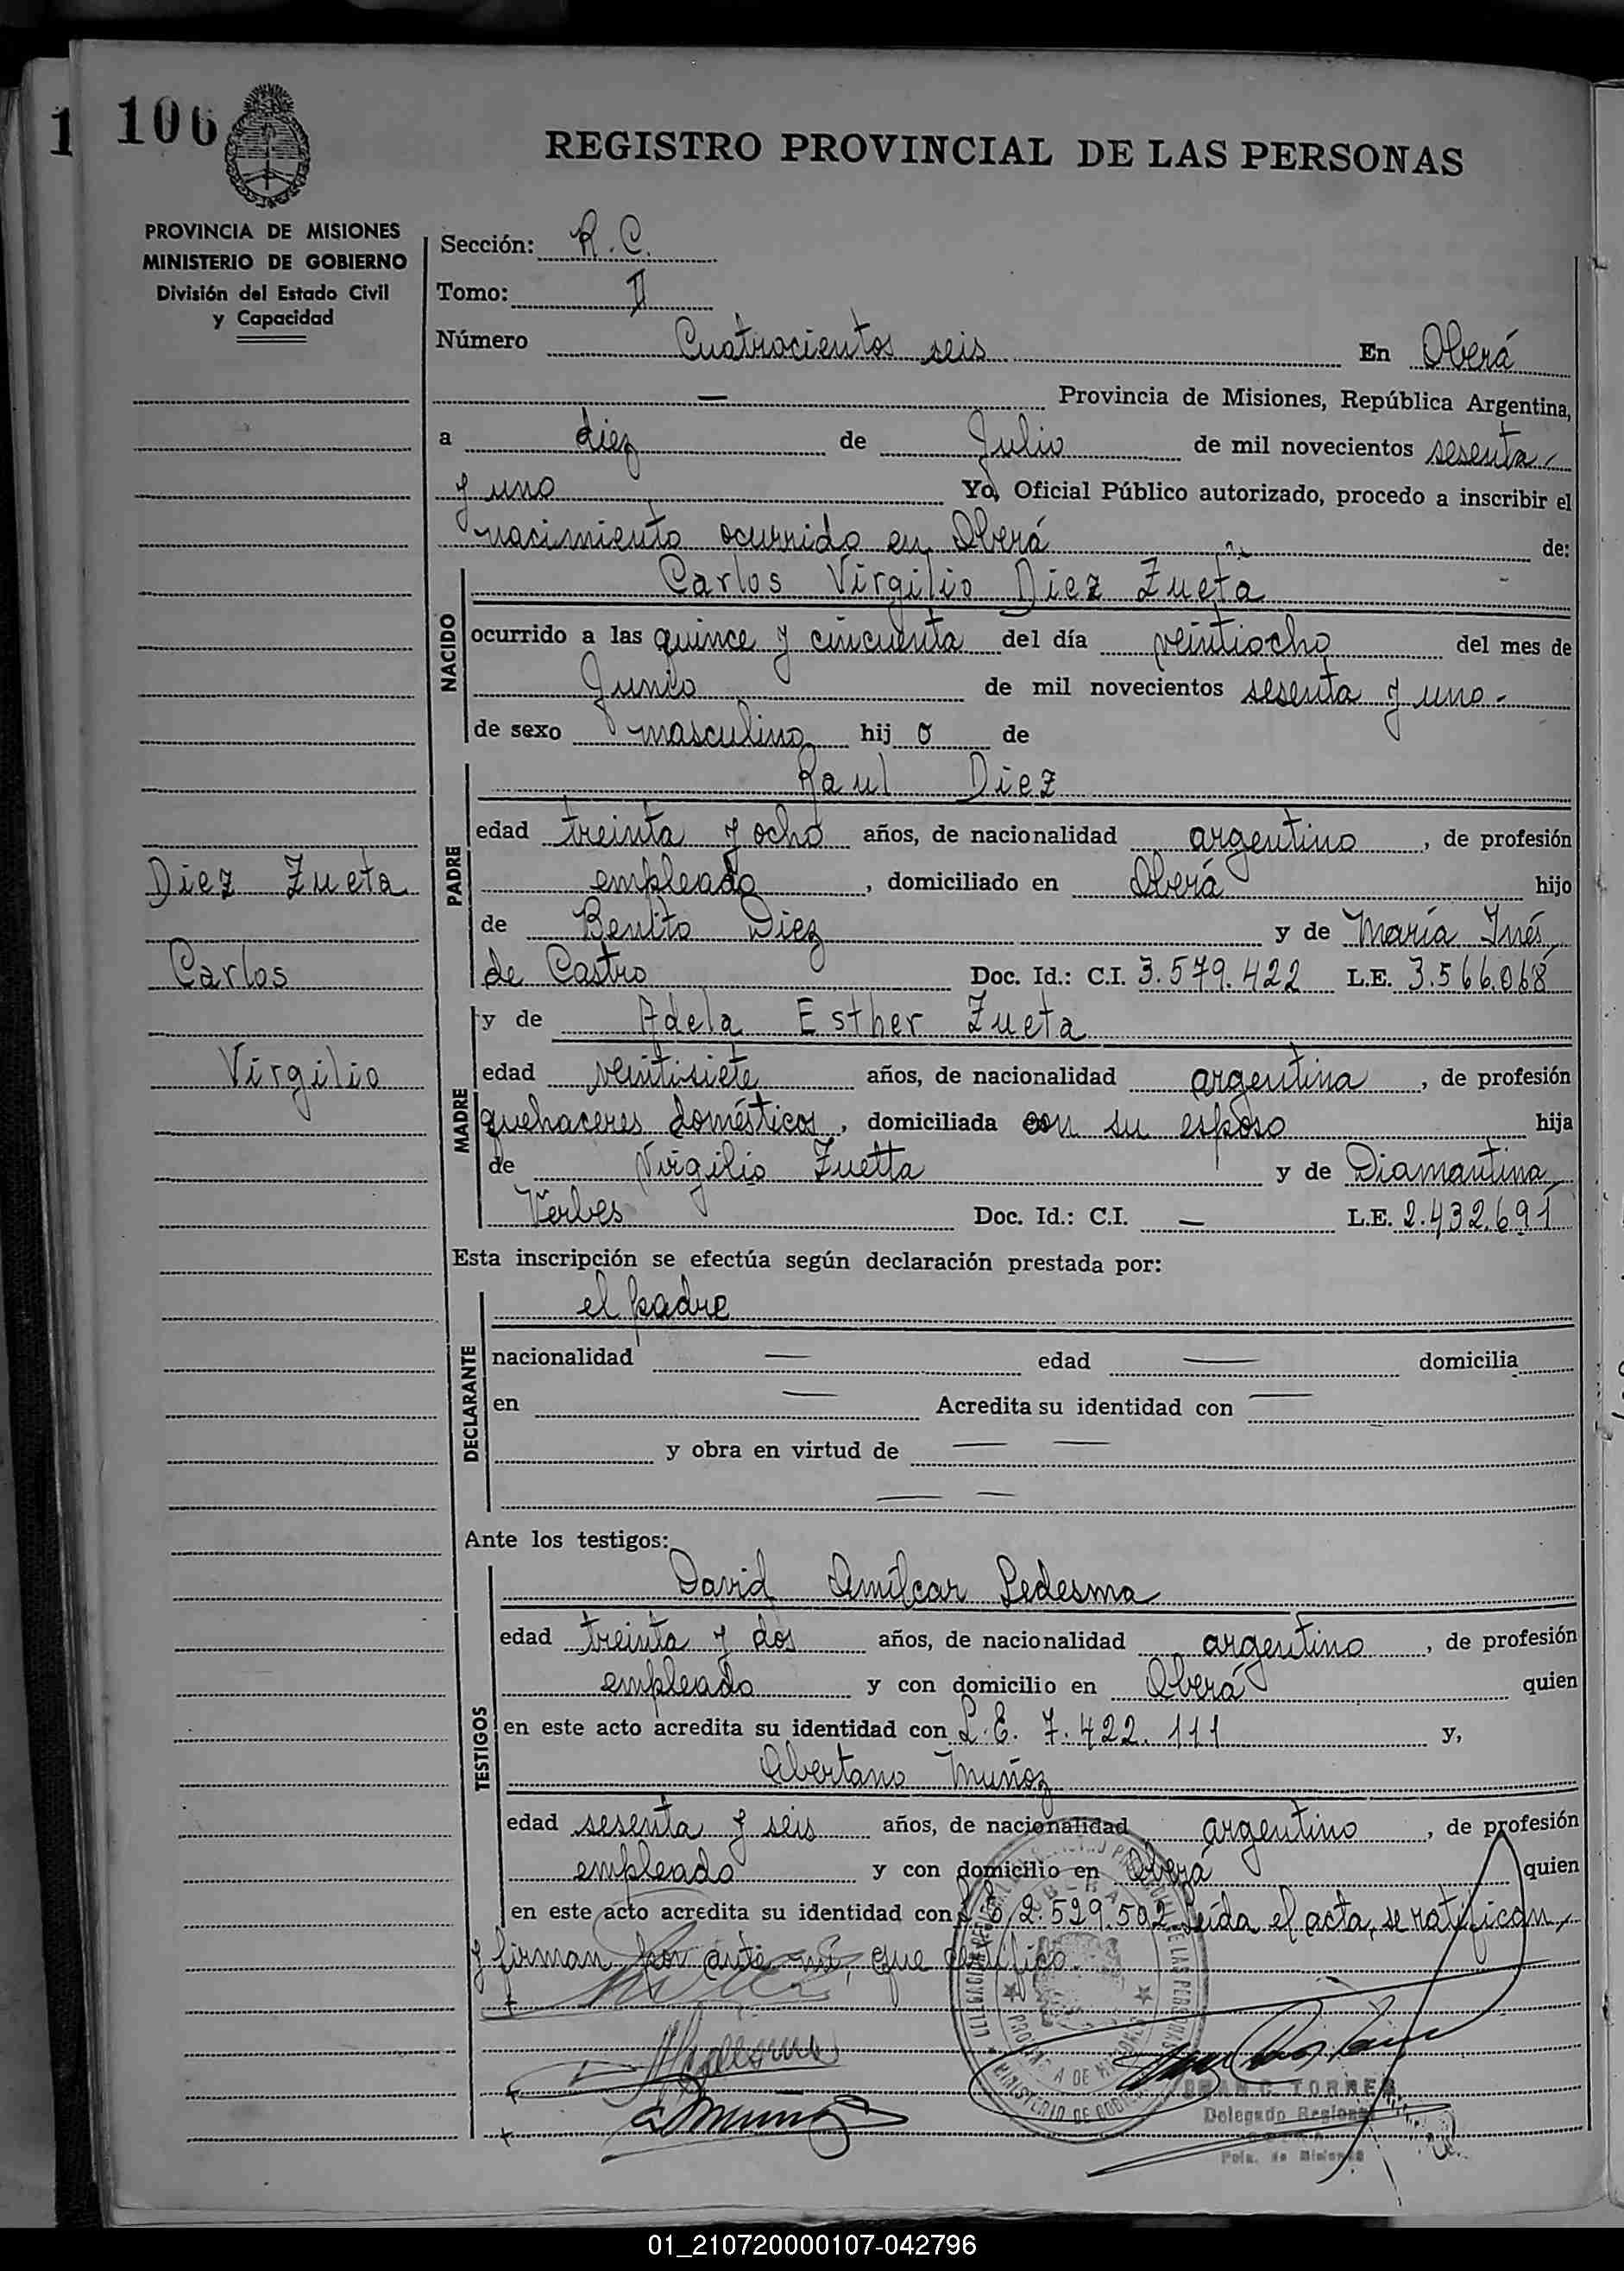 1 106
REGISTRO PROVINCIAL DE LAS PERSONAS
PROVINCIA DE MISIONES
MINISTERIO DE GOBIERNO
División del Estado Civil
y Capacidad
Sección: R. C.
Tomo: II
Número Cuatrocientos seis En Oberá
— Provincia de Misiones, República Argentina,
a diez de Julio de mil novecientos sesenta
y uno Yo, Oficial Público autorizado, procedo a inscribir el
nacimiento ocurrido en Oberá de:
NACIDO
Carlos Virgilio Diez Zueta
ocurrido a las quince y cincuenta del día veintiocho del mes de
Junio de mil novecientos sesenta y uno -
de sexo masculino hijo de
PADRE
Raul Diez
edad treinta y ocho años, de nacionalidad argentino, de profesión
empleado, domiciliado en Oberá hijo
de Benito Diez y de María Inés
de Castro Doc. Id.: C.I. 3.579.422 L.E. 3.566.068
Diez Zueta
Carlos
Virgilio
MADRE
y de Adela Esther Zueta
edad veintisiete años, de nacionalidad argentina, de profesión
quehaceres domésticos, domiciliada con su esposo hija
de Virgilio Zuetta y de Diamantina
Verbes Doc. Id.: C.I. — L.E. 2.432.691
Esta inscripción se efectúa según declaración prestada por:
DECLARANTE
el padre
nacionalidad — edad — domicilia
en — Acredita su identidad con —
y obra en virtud de — —
— —
Ante los testigos:
TESTIGOS
David Amilcar Ledesma
edad treinta y dos años, de nacionalidad argentino, de profesión
empleado y con domicilio en Oberá quien
en este acto acredita su identidad con L.E. 7.422.111 y,
Abertano Muñoz
edad sesenta y seis años, de nacionalidad argentino, de profesión
empleado y con domicilio en Oberá quien
en este acto acredita su identidad con L.E. 2.529.502 Leída el acta, se ratifican
y firman por ante mí, que certifico.
C. TORRES
Delegado Regional
Pcia. de Misiones
01_210720000107-042796